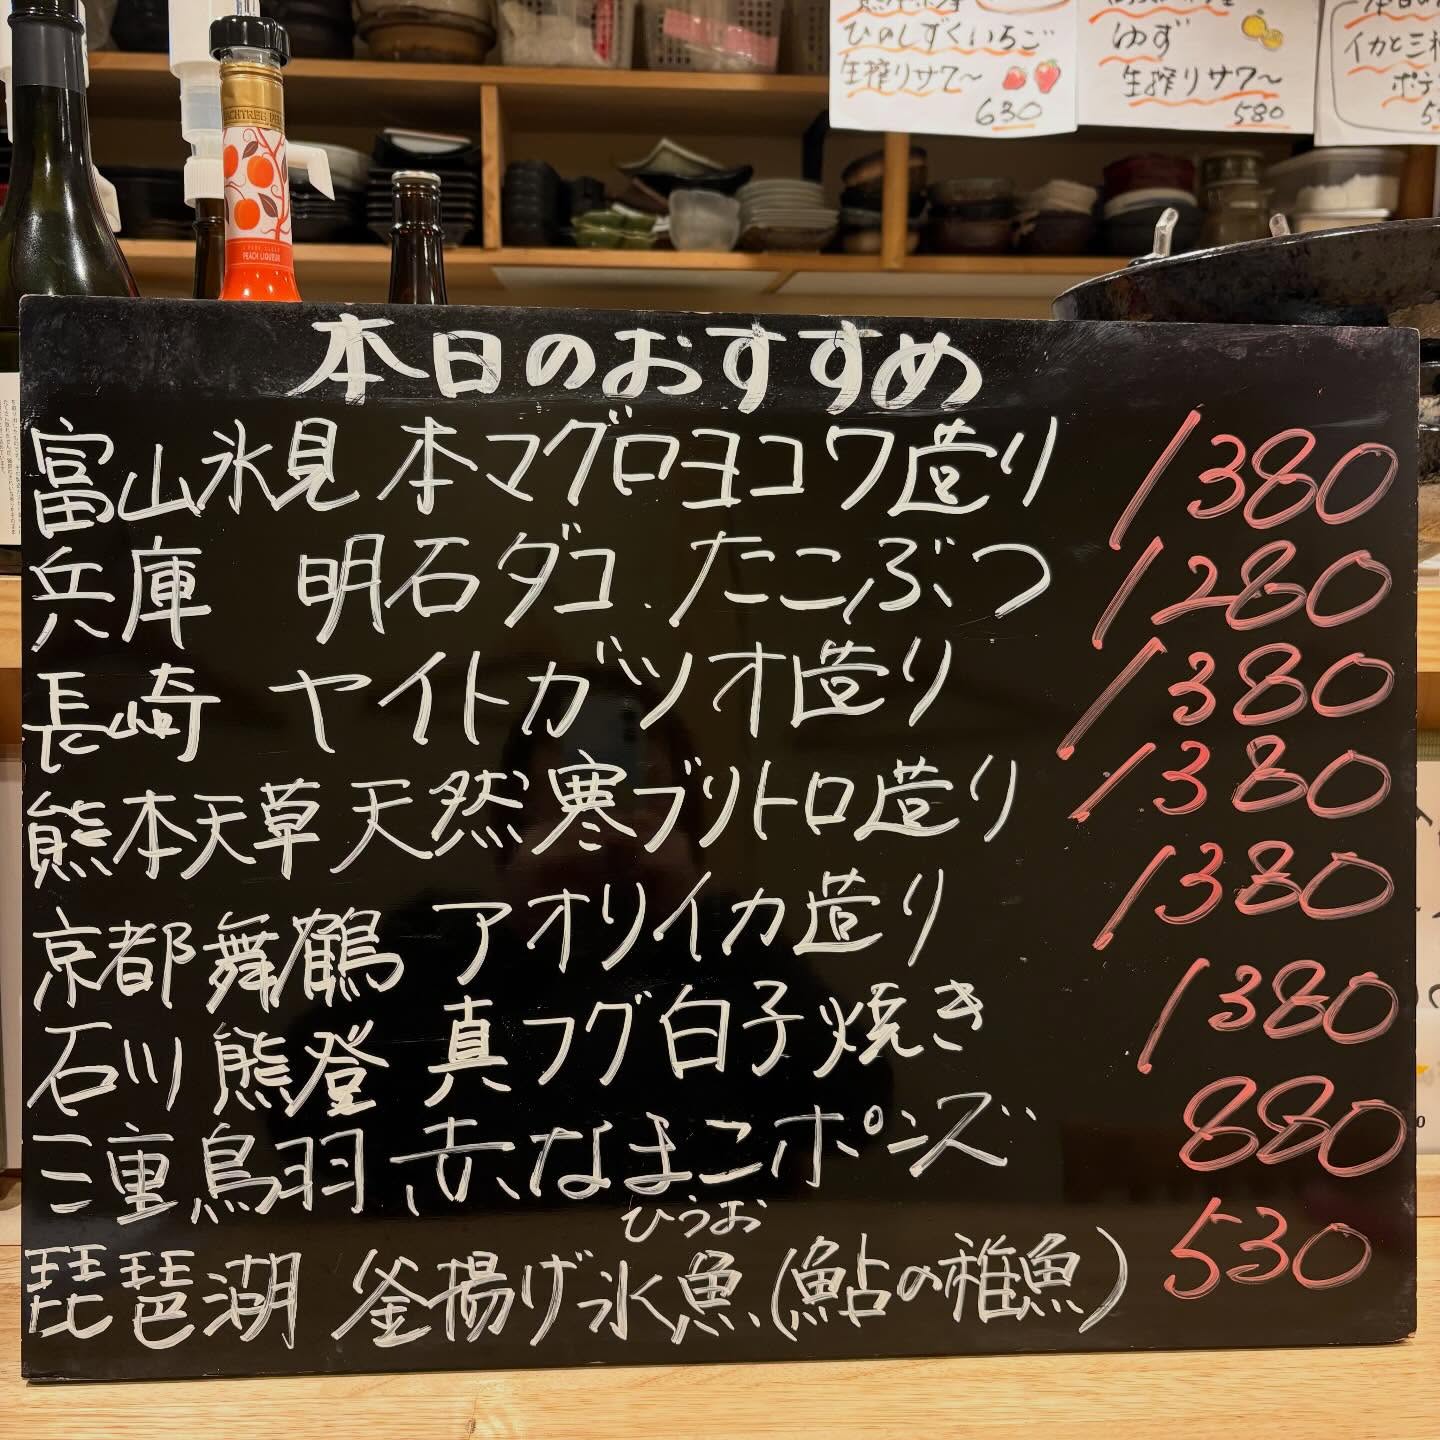 ひのしずくいちご
生搾りサワ〜
630
ゆず
生搾りサワ〜
580
本日の
イカと三
ポテ
PEACH LIQUEUR
本日のおすすめ
富山氷見 本マグロヨコワ造り 1380
兵庫 明石ダコ たこぶつ 1280
長崎 ヤイトガツオ造り 1380
熊本天草 天然寒ブリトロ造り 1380
京都 舞鶴 アオリイカ造り 1380
石川 熊登 真フグ白子焼き 1380
三重鳥羽 赤なまこポンズ 880
ひうお
琵琶湖 釜揚げ氷魚(鮎の稚魚) 530